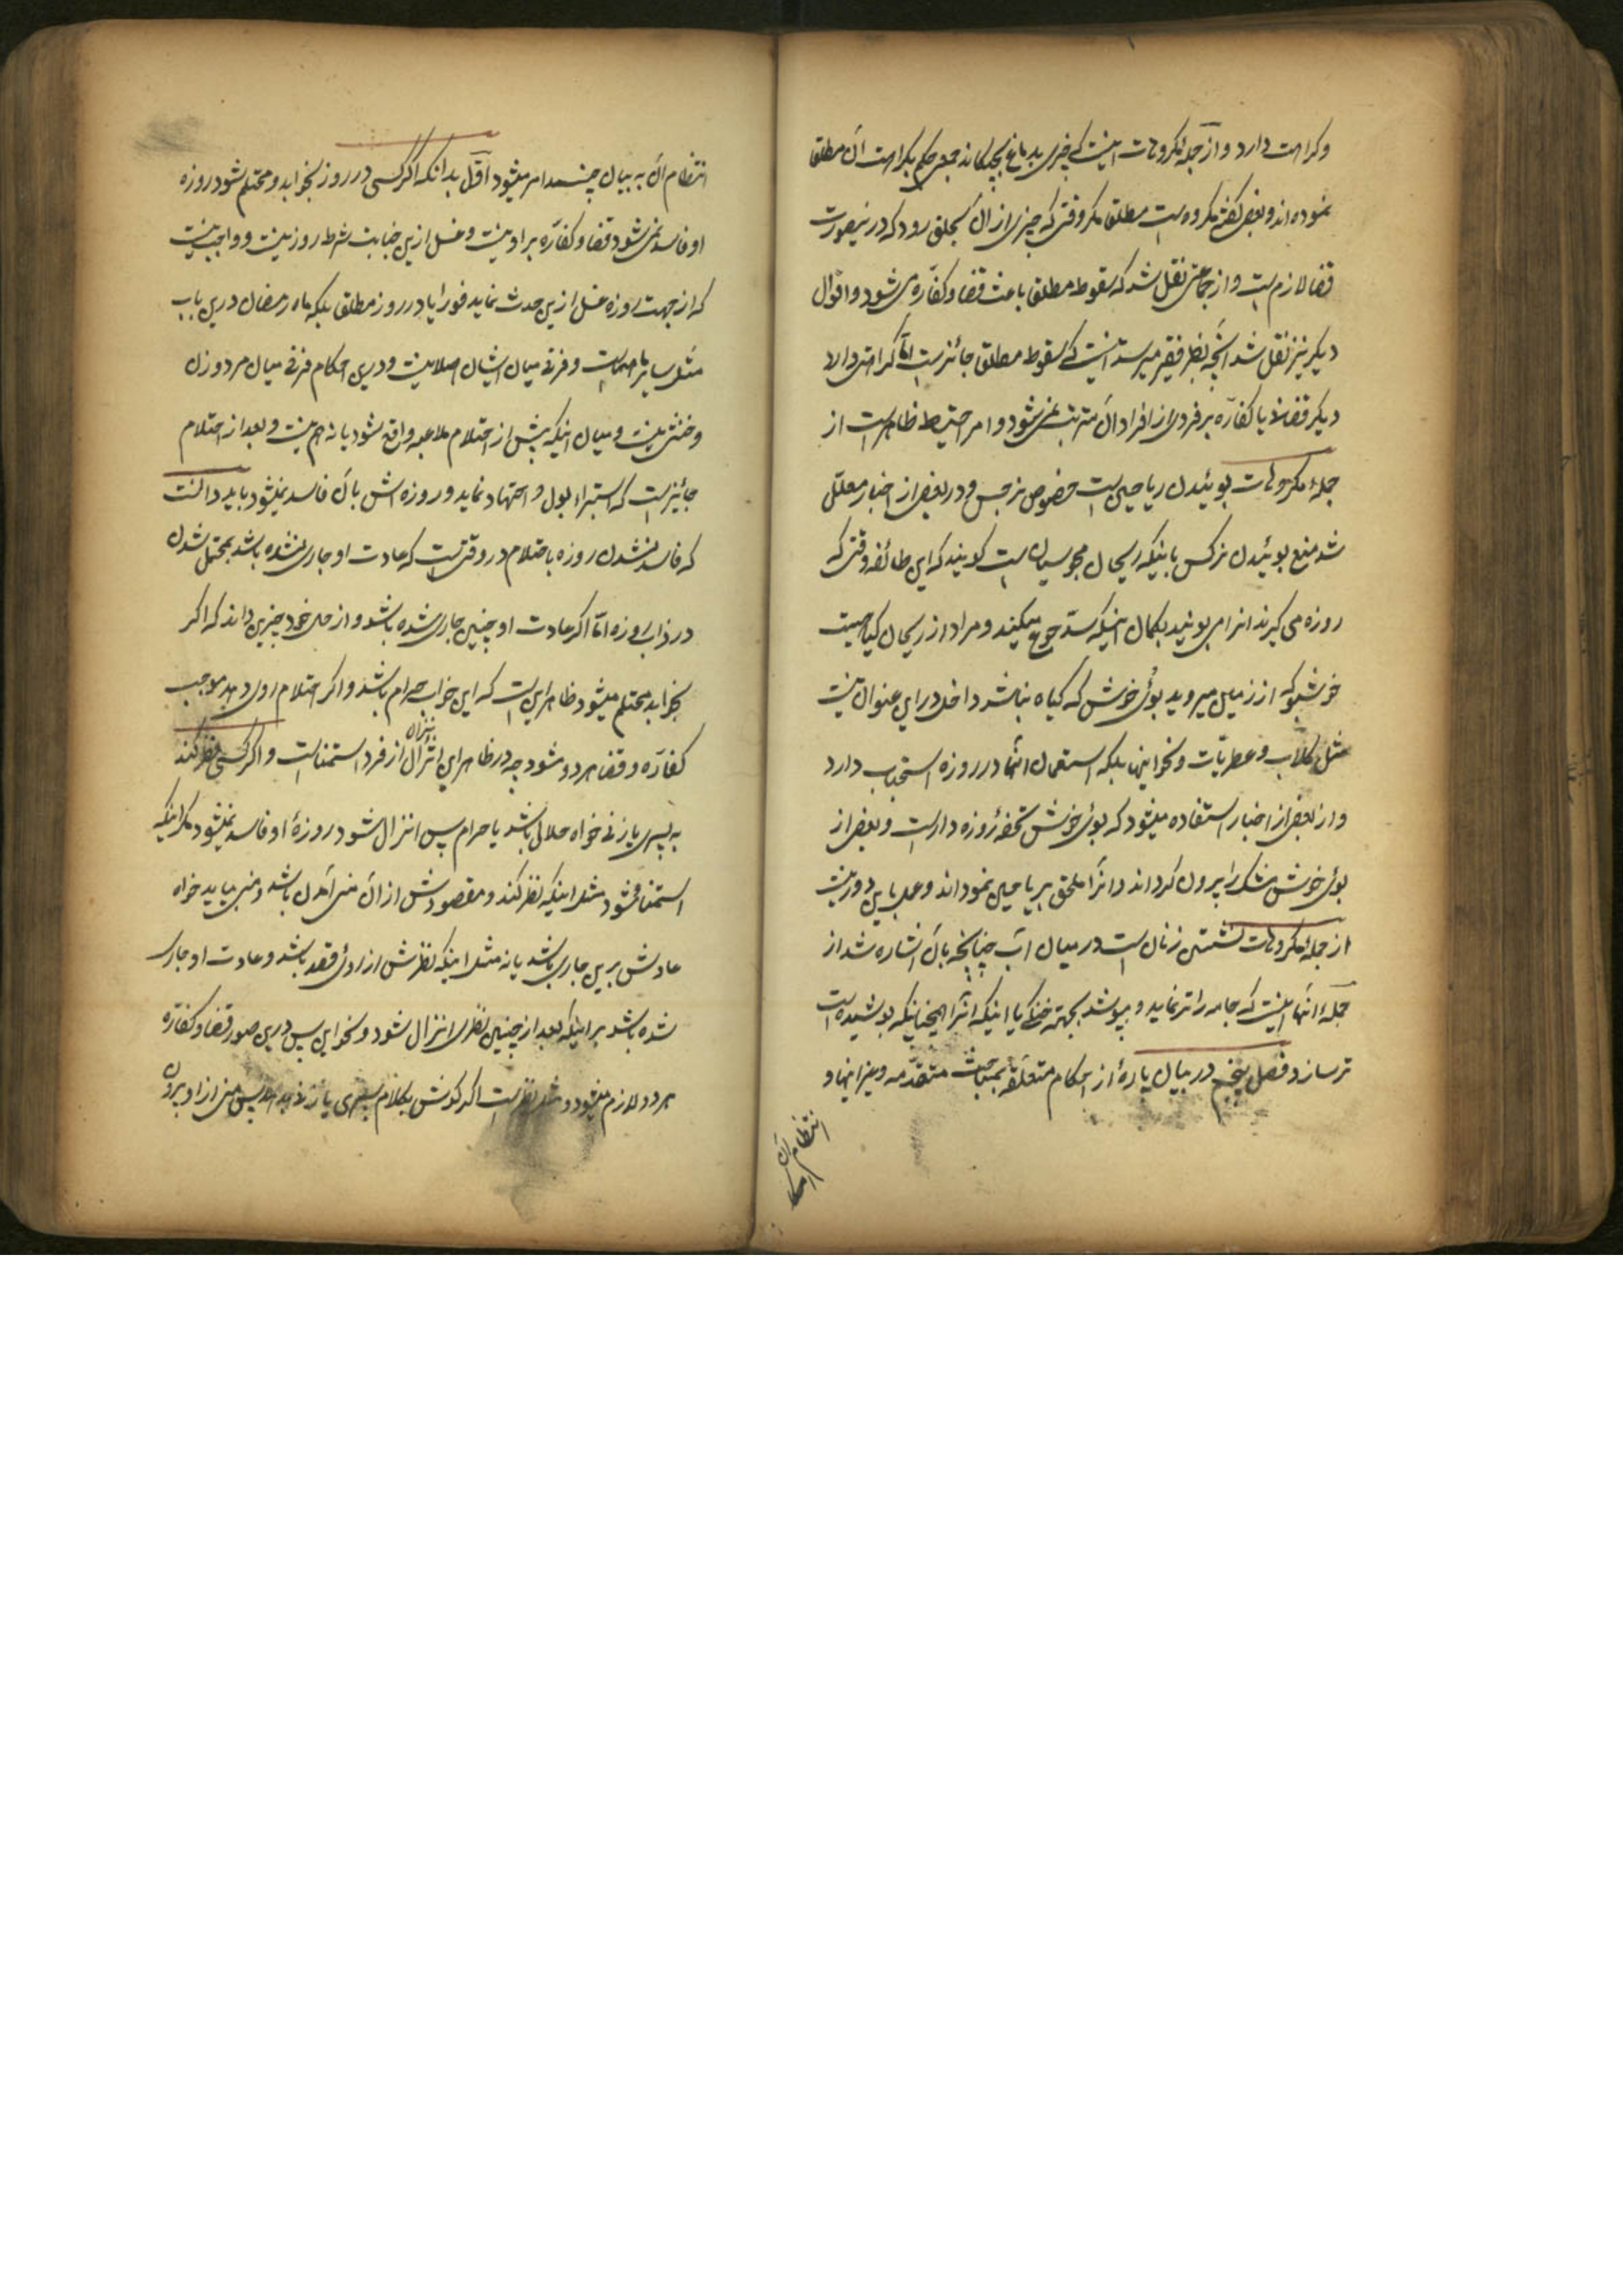 وکراهت دارد و از جمله مکروهات اینست که چیزی بدماغ بچکاند جمعی حکم بکراهت آن مطلقا
نموده‌اند و بعضی گفته مکروه است مطلقا مگر وقتی که چیزی از آن بحلق رود که درینصورت
قضا لازم است و از جماعتی نقل شد که سقوط مطلقا باعث قضا و کفّاره می شود و اقوال
دیگر نیز نقل شد آنچه بنظر فقیر میرسد اینست که سقوط مطلقا جائز است امّا کراهتی دارد
دیگر قضا یا کفّاره بر فردی از افراد آن مترتب نمی‌شود و امر احتیاط ظاهر است از
جمله مکروهات بوئیدن ریاحین است خصوص نرجس و در بعضی از اخبار معلّل
شد منع بوئیدن نرکس باینکه ریحان مجوسیان است کویند که این طائفه وقتی که
روزه می کیرند انرا می بویند بکمال اینکه سدّ جوع میکند و مراد از ریحان کیاهیست
خوشبو که از زمین میروید بوئی خوش که کیاه نباشد داخل در این عنوان نیست
مثل کلاب و عطریّات و نحو اینها بلکه استعمال انها در روزه استحباب دارد
و از بعضی از اخبار استفاده میشود که بوئی خوش تحفهٔ روزه دار است و بعضی از
بوئی خوش مشک را بیرون کرد‌اند و انرا ملحق بریاحین نموداند و عمل باین دور نیست
از جمله مکروهات نشستن زنان است در میان آب چنانچه بآن اشاره شد از
جملهٔ انها اینست که جامه را تر نماید و بپوشد بجهته خنکی یا اینکه انرا همچنانیکه پوشیده است
تر سازد فصل پنجم در بیان پارهٔ از احکام متعلّقه بمباحث متقدّمه و غیر اینها و
انتظام آن
انتظام آن به بیان چند امر میشود اوّل بدانکه اکر کسی در روز بخوابد و محتلم شود روزه
او فاسد نمی شود قضا و کفّاره بر او نیست و غسل ازین جنابت شرط روز نیست و واجب نیست
که از جهت روزه غسل ازین حدث نماید فورا یا در روز مطلقا بلکه ماه رمضان درین باب
مثل سایر ماههاست و فرقی میان ایشان اصلا نیست و درین احکام فرقی میان مرد و زن
و خنثی نیست و میان اینکه پیش از احتلام ملاعبه واقع شود یا نه هم نیست و بعد از احتلام
جائز است که استبراء ببول و اجتهاد نماید و روزه اش بآن فاسد نمیشود باید دانست
که فاسد نشدن روزه باحتلام در وقتی‌ست که عادت او جاری نشده باشد بمحتلم شدن
در خواب روزه امّا اکر عادت او چنین جاری شده باشد و از حال خود چنین داند که اکر
بخوابد محتلم میشود ظاهر این است که این خواب حرام باشد و اکر احتلام روی دهد موجب
کفّاره و قضا هر دو شود چه در ظاهر این انزال از فرد استمناست و اکر کسی نظر کند
به پسری یا زنی خواه حلال باشد یا حرام پس انزال شود روزهٔ او فاسد نمیشود مکر اینکه
استمنا شود مثل اینکه نظر کند و مقصودش از آن منی آمدن باشد و منی بیاید خواه
عادتش برین جاری باشد یا نه مثل اینکه نظرش از روی قصد باشد و عادت او جاری
شده باشد بر اینکه بعد از چنین نظری انزال شود و نحو این پس درین صور قضا و کفّاره
هر دو لازم میشود و مثل نظرست اکر کوش بکلام پسری یا زنی بدهد پس منی از او بیرون